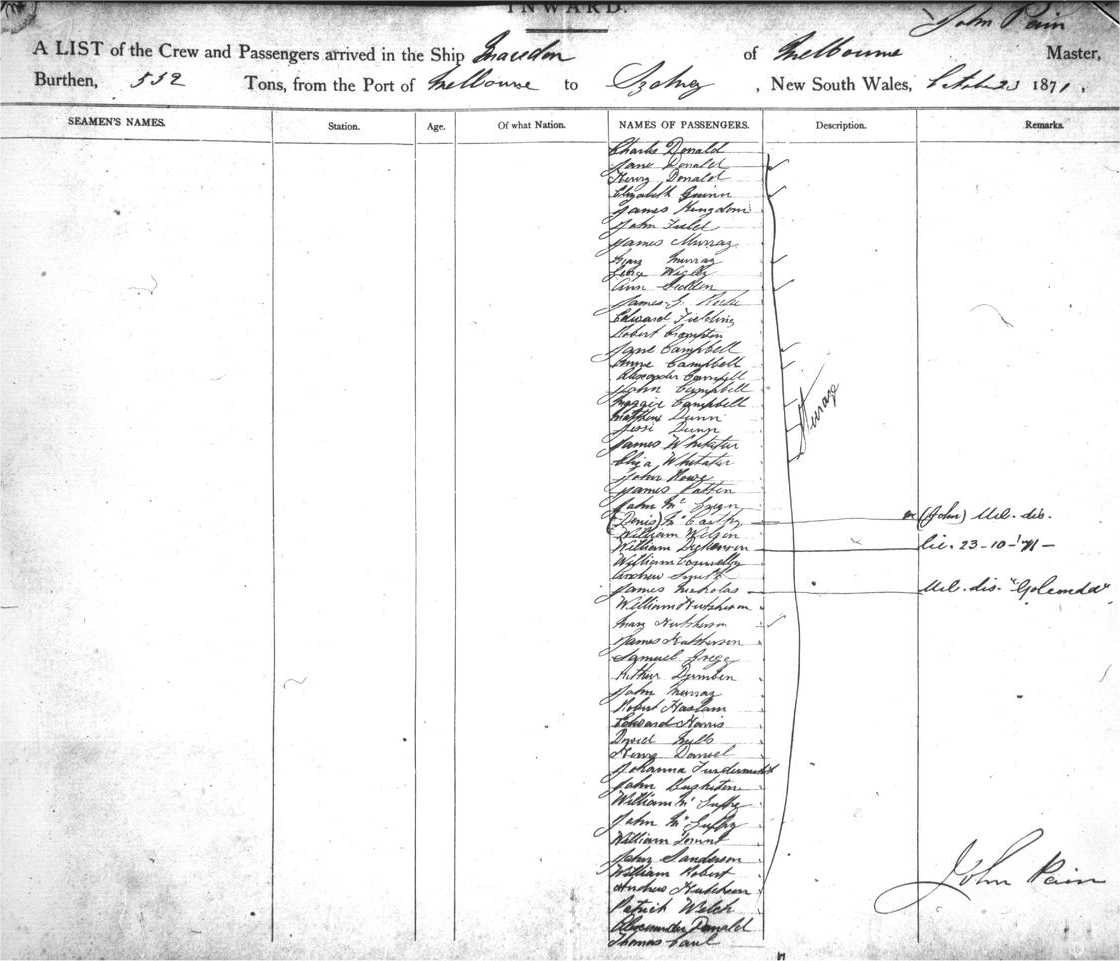 INWARD.
John Pain
A LIST of the Crew and Passengers arrived in the Ship Macedon of Melbourne Master,
Burthen, 552 Tons, from the Port of Melbourne to Sydney, New South Wales, October 23 1871,
SEAMEN'S NAMES. Station. Age. Of what Nation. NAMES OF PASSENGERS. Description. Remarks.
Charles Donald
Jane Donald
Henry Donald
Elizabeth Quinn
James Kingdom
John Field
James Murray
Mary Murray
George Wigley
Ann
James J.
Edward Fielding
Robert Crompton
Jane Campbell
Annie Campbell
Alexander Campbell
John Campbell
Maggie Campbell
Matthew Dunn
Jessie Dunn
James Whitater
Eliza Whitater
Sturage
John Howe
James Patten
John Mc
(Denis) McCarthy or (John) Mel. dis.
William Wilson
William Dickenson lic. 23-10-'71-
William Connelly
Andrew Smith
James Nicholas Mel. dis. "Golconda"
William Hutcheson
Mary Hutcheson
James Hutcheson
Samuel Gregg
Arthur
John Murray
Robert Haslam
Edward Harris
David Mills
Henry Daniel
Johanna
John
William McGuffy
John McGuffy
William
John Sanderson
William Robert
John Pain
Andrew Hutcheson
Patrick Welch
Alexander Donald
Thomas Caul